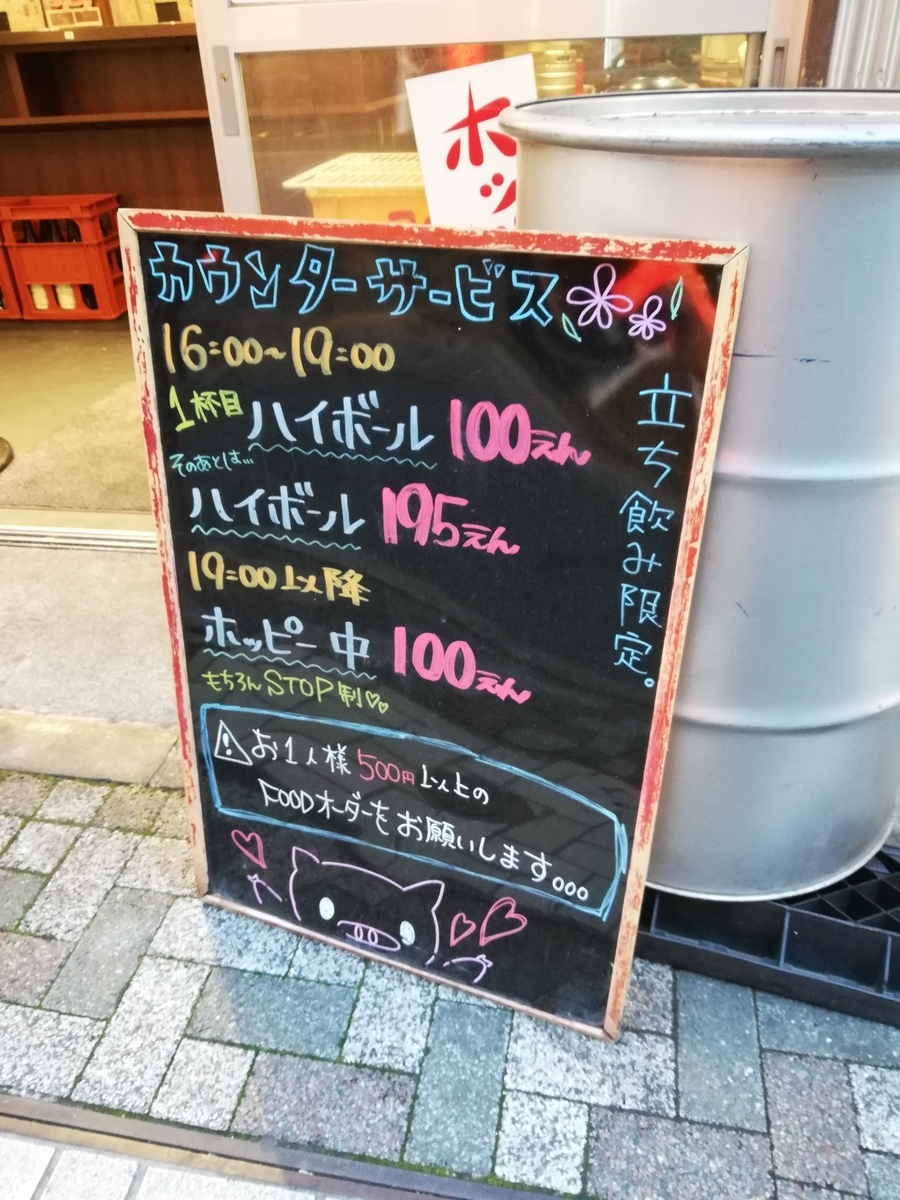 ホッ
カウンターサービス
16:00~19:00
1杯目 ハイボール 100えん
そのあとは...
ハイボール 195えん
19:00以降
ホッピー 中 100えん
もちろんSTOP制♡♡
立ち飲み限定。
⚠お1人様 500円以上の
FOODオーダーをお願いします。。。